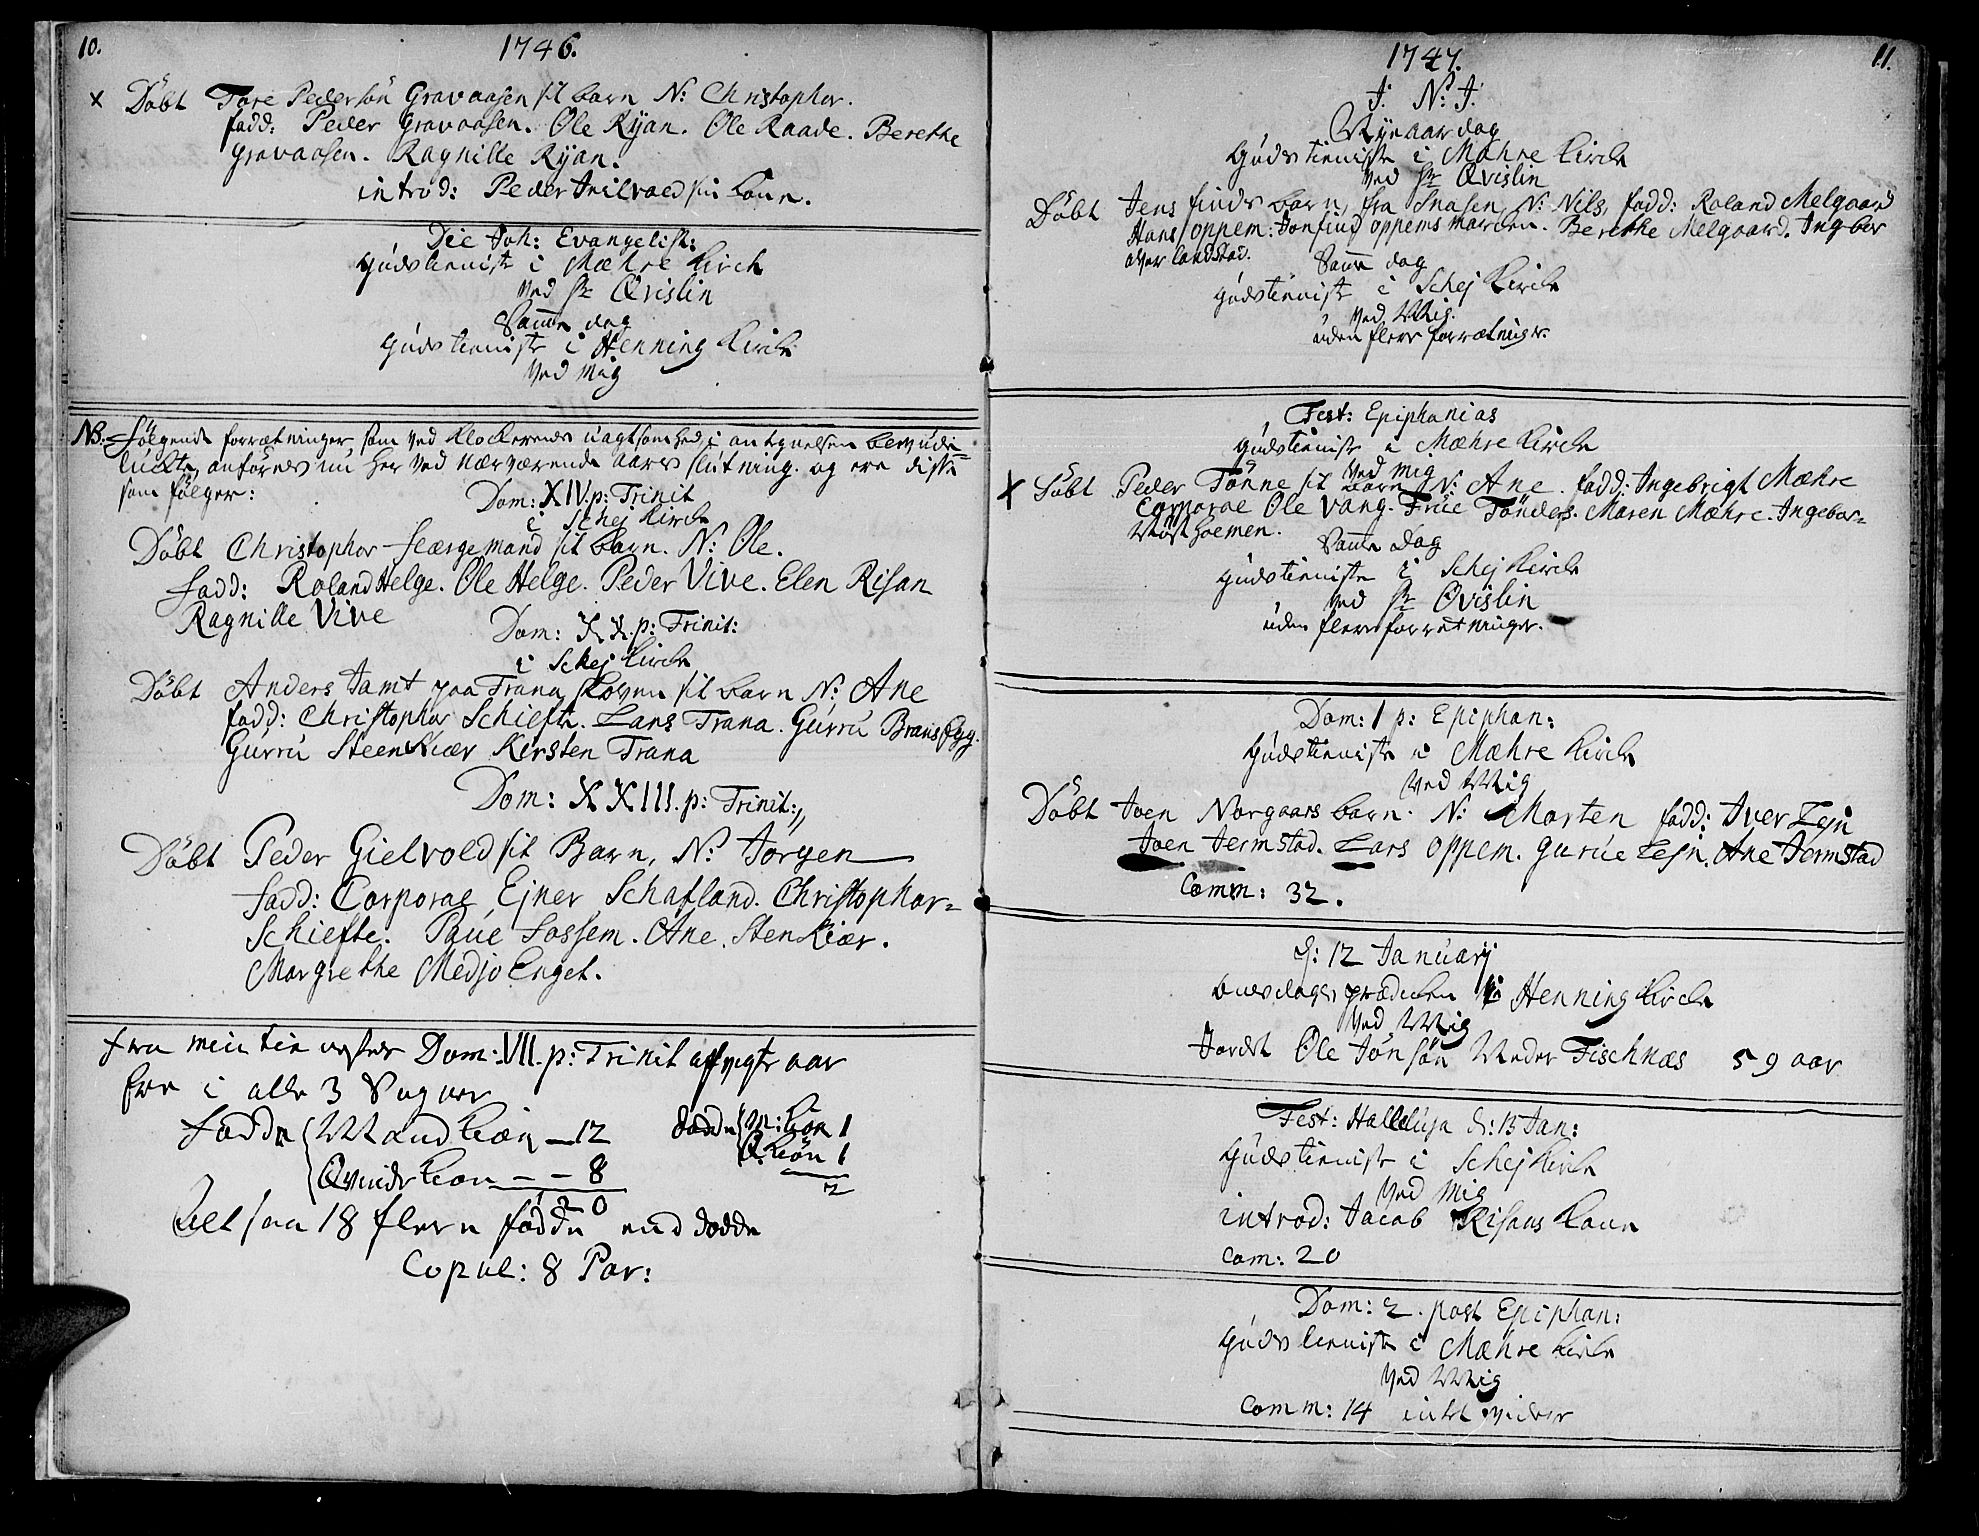 10.
1746.
x Döbt Tore Pedersön Gravaasen sit barn N: Christopher.
fadd: Peder Gravaasen. Ole Ryan. Ole Raade. Berethe
Gravaasen. Ragnille Ryan.
introd: Peder kone.
Die Joh: Evangelist:
Gudstieniste i Mæhre Kirch
ved Sr Qvislin
Samme dag
Gudstieniste i Henning Kirche
ved mig
NB. Følgende forrætninger som ved Klockerens uagtsomhed i antegnelsen
anføres nu her ved nærværende aars slutning. og ere disse
som følger:
Dom: XIV. p: Trinit
i Schej Kirche
Döbt Christopher færgemand sit barn. N: Ole.
fadd: Roland Helge. Ole Helge. Peder Vive. Elen Risan
Ragnille Vive
Dom: XX. p: Trinit:
i Schej Kirche
Döbt Anders Jamt paa Trana skoven sit barn N: Ane
fadd: Christopher Schiefte. Lars Trana. Gurru
Gurru Steenkiær Kersten Trana
Dom: XXIII. p: Trinit:
Döbt Peder Gielvold sit Barn, N: Jörgen
fadd: Corporal Ejner Schafland. Christopher
Schiefte. Paul Fossem. Ane Stenkiær.
Margrethe Medjo Enget.
fra min tie efter Dom: VII. p: Trinit aar
ere i alle 3 Sogner
fødde Mandkiøn — 12 dødde M: kiøn 1
Qvindekiøn — — 8 Q. kiøn 1
20 2
Altsaa 18 flere fødde end dødde
Copul: 8 Par:
11.
1747.
J. N: J:
Nyeaarsdag
Gudstieniste i Mæhre Kirche
ved Sr Qvislin
Döbt Jens finds barn, fra Snasen N: Nils, fadd: Roland Melgaard
Hans Oppem: Jon find Oppems marchen. Berethe Melgaard. Ingbor
Samme dag
Gudstieniste i Schej Kirche
ved Mig.
uden flere forrætninger.
Fest: Epiphanias
Gudstieniste i Mæhre Kirche
ved mig
x Döbt Peder Tönne sit barn N: Ane. fadd: Ingebrigt Mæhre
Corporal Ole Vang. Frue Tönder. Maren Mæhre. Ingebor
Samme dag
Gudstieniste i Schej Kirche
ved Sr Qvislin
uden flere forretninger.
Dom: 1 p: Epiphan:
Gudstieniste i Mæhre Kirche
ved Mig
Döbt Joen Norgaars barn. N: Morten fadd: Iver Lejn
Joen Jermstad. Lars Oppem. Gurue Lejn. Ane Jermstad
Comm: 32.
d: 12 Januarij
prædicken i Henning Kirche
ved Mig
Jordet Ole Jonsön Neder Fischnæs 59 aar
Fest: Halleluja d: 13 Jan:
Gudstieniste i Schej Kirche
ved mig
introd: Jacob Risans kone
Com: 20
Dom: 2. post Epiphan:
Gudstieniste i Mæhre Kirche
ved Mig
Comm: 14 intet videre